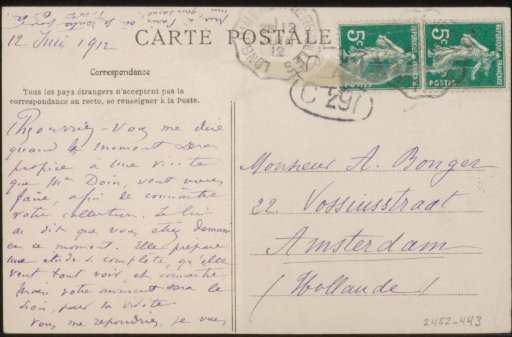 12 Juin 1912
CARTE POSTALE
Correspondance
Tous les pays étrangers n'acceptent pas la
correspondance au recto, se renseigner à la Poste.
Pourriez-vous me dire
quand le moment sera
propice à une visite
que Mme Doin, veut vous
faire, afin de connaître
votre collection. Je lui
ai dit que vous étiez
en ce moment. Elle prépare
une étude si complète, qu'elle
veut tout voir et connaître
Mais votre moment sera le
sien, pour la visite
Vous me répondrez, je vous
5c
REPUBLIQUE FRANÇAISE
POSTES
5c
REPUBLIQUE FRANÇAISE
POSTES
C 297
Monsieur A. Bonger
22 Vossiusstraat
Amsterdam
(Hollande)
2452-443